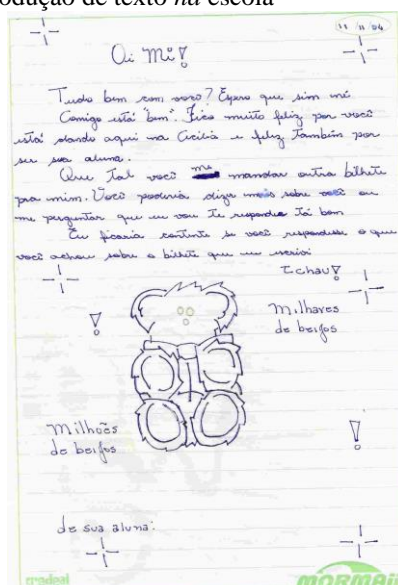 odução de texto na escola
11 11 04
Oi Mi!
Tudo bem com você? Espero que sim né
Comigo está bem. Fico muito feliz por você
está dando aqui na Cecilia e feliz também por
ser sua aluna.
Que tal você me mandar outra bilhete
pra mim. Você poderia dizer mais sobre você ou
me perguntar que eu vou te responder tá bom
Eu ficaria contente se você respondesse o que
você achou sobre o bilhete que eu escrivi
Tchau!
!
Milhares
de beijos
Milhões
de beijos
!
de sua aluna:
credeal
MORMAII